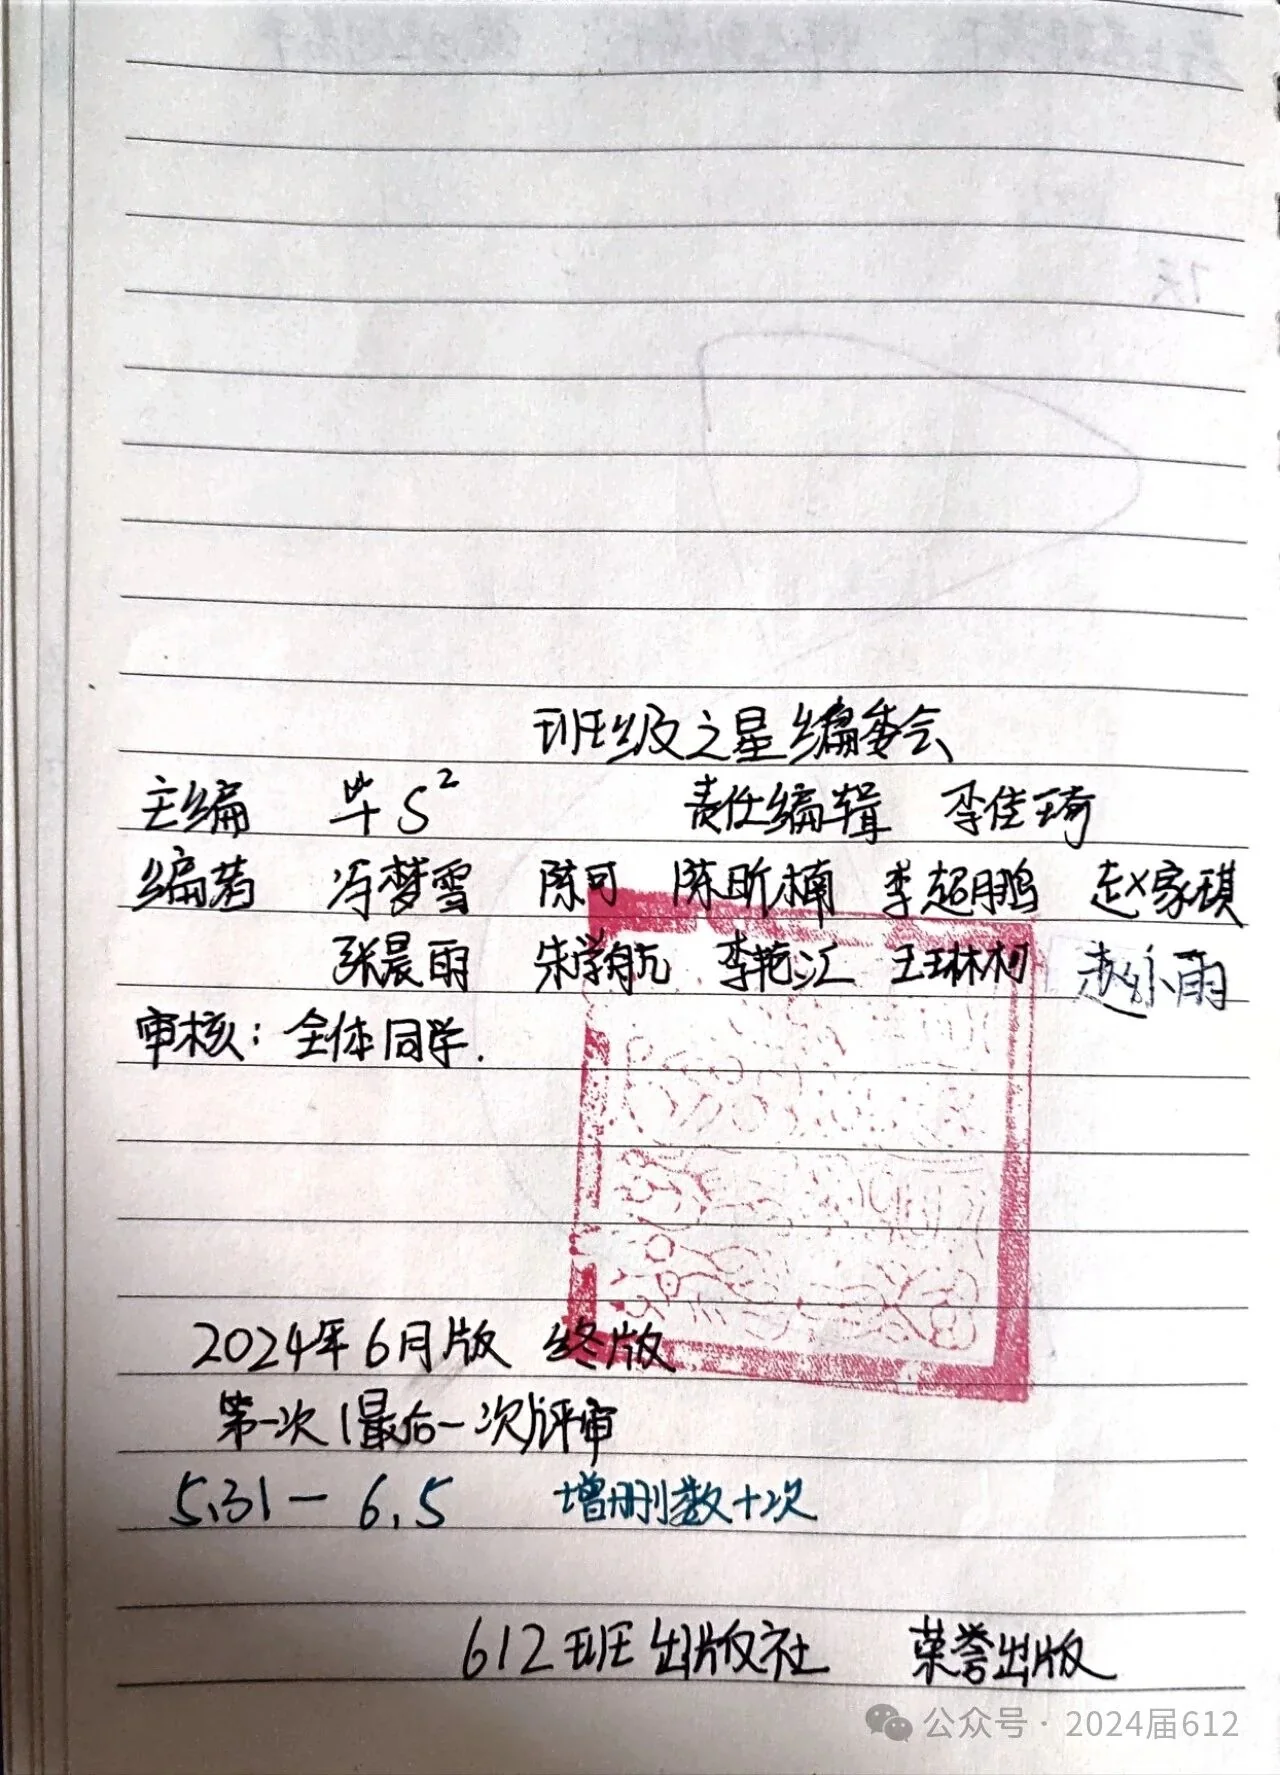 班级之星编委会
主编 毕S² 责任编辑 李佳琦
编者 冯梦雪 陈可 陈昕楠 李超鹏 赵家琪
张晨雨 朱学航 李艳汇 王琳柯 赵小雨
审核：全体同学.
2024年6月版 终版
第一次(最后一次)评审
5.31－6.5 增删数十次
612班出版社 荣誉出版
公众号·2024届612